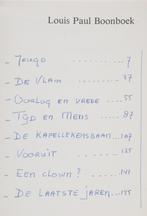 Louis Paul Boonboek
- Jeugd 7
- De Vlam 37
- Oorlog en vrede 55
- Tijd en Mens 87
- De Kapellekensbaan 107
- Vooruit 125
- Een clown? 141
- De laatste jaren 155